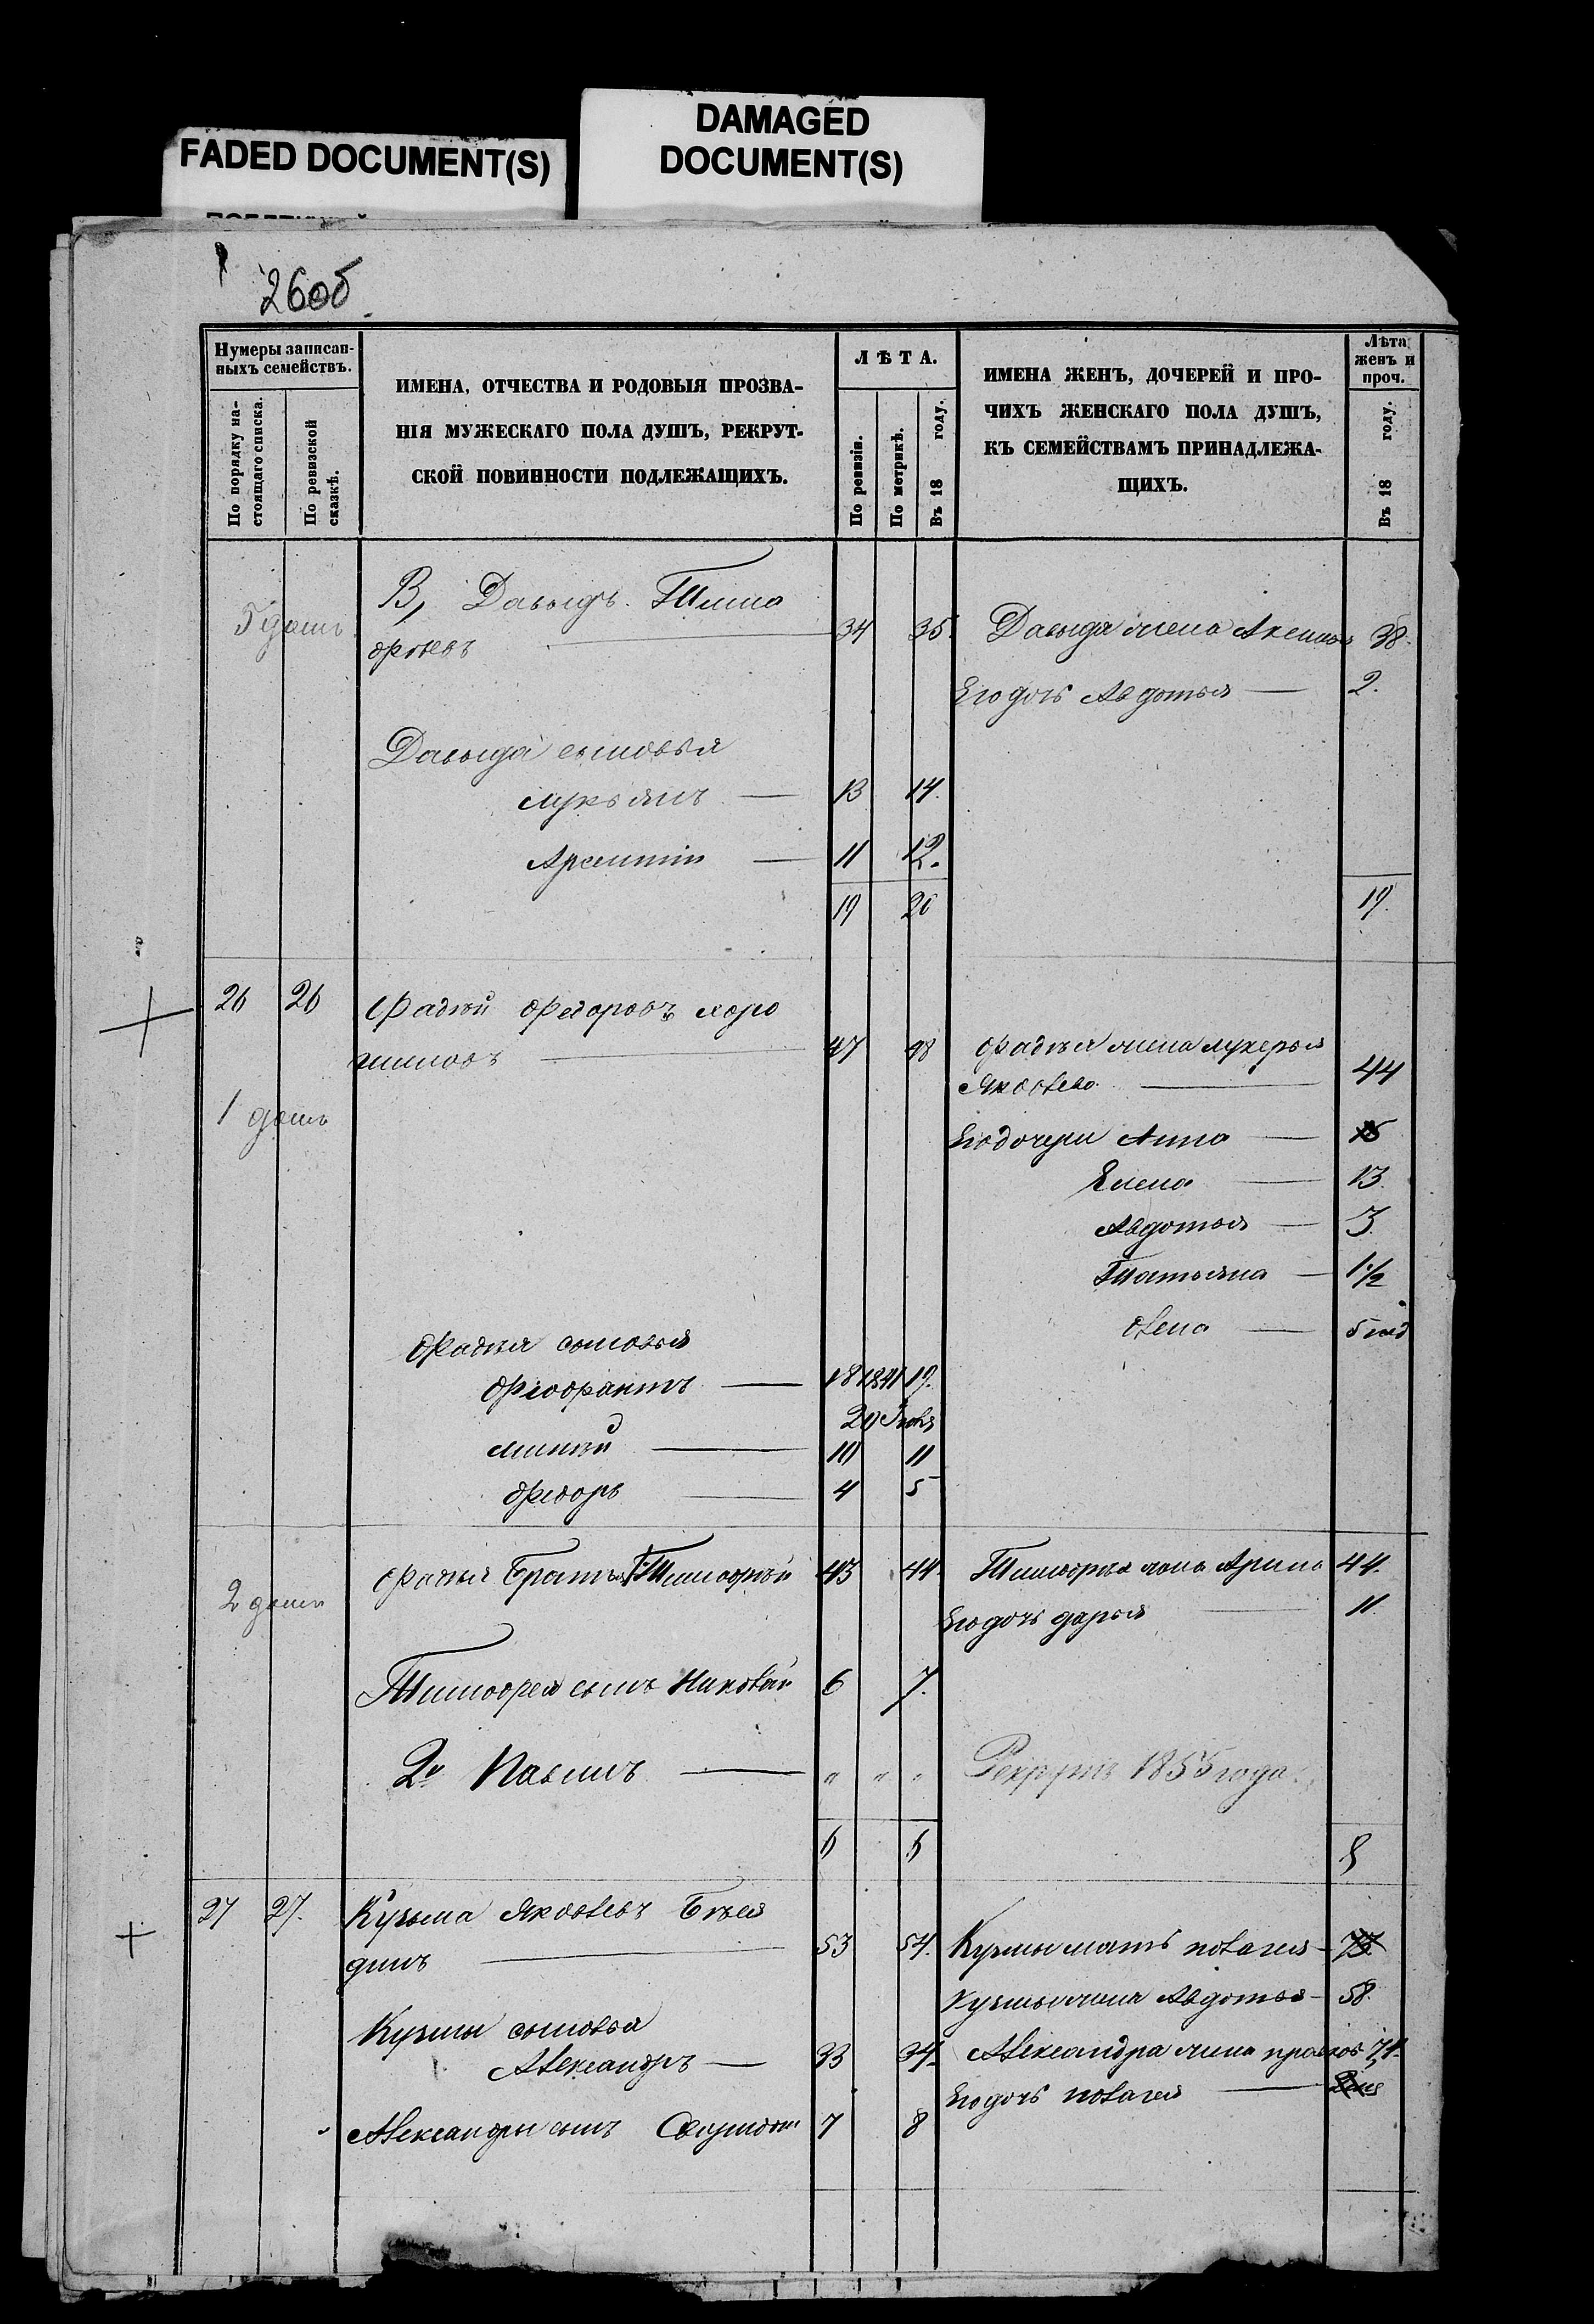 FADED DOCUMENT(S)
DAMAGED
DOCUMENT(S)
26об
Нумеры записан-
ныхъ семействъ.
По порядку на-
стоящаго списка.
По ревизской
сказкѣ.
ИМЕНА, ОТЧЕСТВА И РОДОВЫЯ ПРОЗВА-
НІЯ МУЖЕСКАГО ПОЛА ДУШЪ, РЕКРУТ-
СКОЙ ПОВИННОСТИ ПОДЛЕЖАЩИХЪ.
ЛѢТА.
По ревизіи.
По метрикѣ.
Въ 18 году.
ИМЕНА ЖЕНЪ, ДОЧЕРЕЙ И ПРО-
ЧИХЪ ЖЕНСКАГО ПОЛА ДУШЪ,
КЪ СЕМЕЙСТВАМЪ ПРИНАДЛЕЖА-
ЩИХЪ.
Лѣта
женъ и
проч.
Въ 18 году.
В, Давыдъ Тимо
5 домъ
фѣевъ 34 35. Давыда жена Аксинья 38.
Его дочь Авдотья 2.
Давыда сыновья
Лукьянъ 13 14.
Арсентій 11 12.
19 20 19.
26 26 Фадѣй Федоровъ
47 48 Фадѣя жена Лукерья
Яковлева 44
1 домъ
Его дочери Анна
Елена 13.
Авдотья 3.
Татьяна 1 1/2
5 нед
Фадѣя сыновья
Феофантъ 18 1841 19.
20
10 11
Федоръ 4 5
Фадѣя Братья 1. Тимофѣй 43 44. Тимофѣя жена Арина 44.
2 домъ
Его дочь Дарья 11.
Тимофея сынъ Николай 6 7.
2й Павелъ " " " Рекрутъ 1855 года.
6 6 8
27 27. Кузьма Яковлевъ
динъ 53 54. Кузмы мать Пелагея 75.
Кузмы жена Авдотья 58.
Кузмы сыновья
Александръ 33 34. Александра жена
Его дочь Пелагея
Александры сынъ 7 8